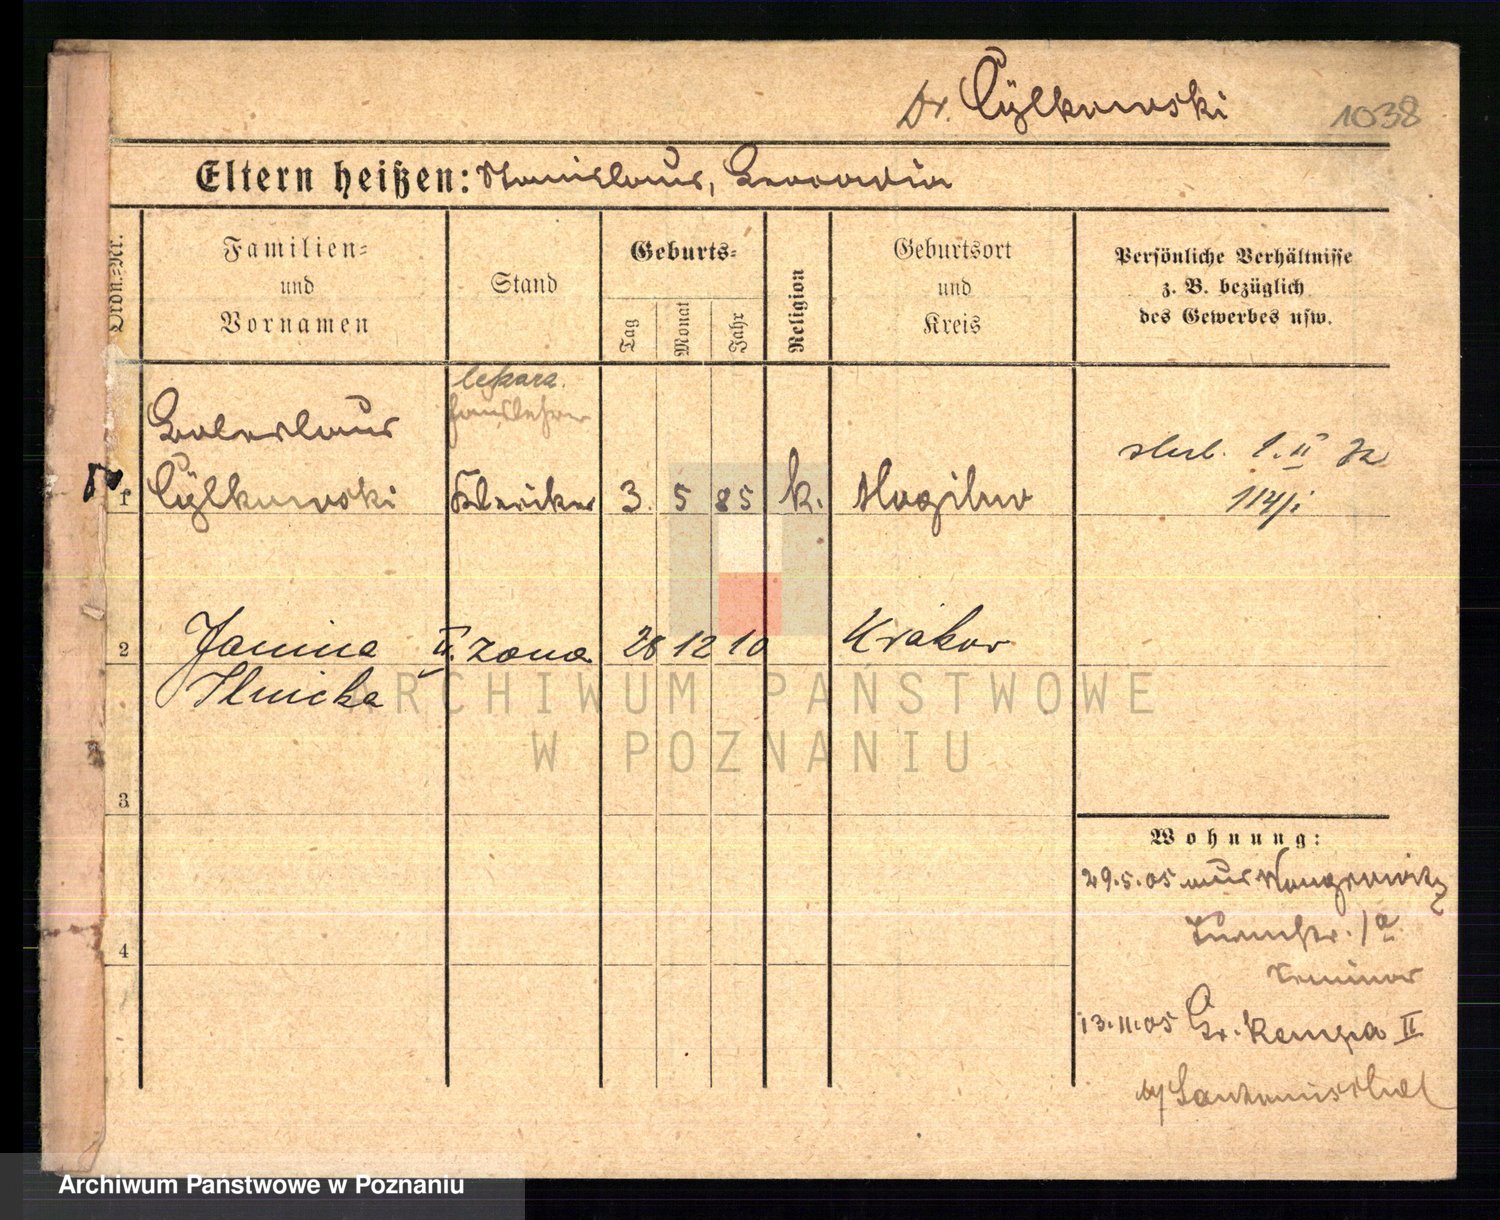 Dr. Cylkowski 1038
Eltern heißen: Stanislaus, Leocadia
Ordn.-Nr.
Familien-
und
Vornamen
Stand
Geburts-
Tag
Monat
Jahr
Religion
Geburtsort
und
Kreis
Persönliche Verhältnisse
z. B. bezüglich
des Gewerbes usw.
lekarz
Hauslehrer
Boleslaus
1 Cylkowski Kleriker 3. 5 85 k. Mogilno
114/i
2 Janina II. żona 28 12 10 Kraków
Ilnicka
ARCHIWUM PAŃSTWOWE
W POZNANIU
3
Wohnung:
29.5.05 aus Wongrowitz
Turmstr. 1a
4
Seminar
13.11.05 Gr. Kempa II
Archiwum Państwowe w Poznaniu